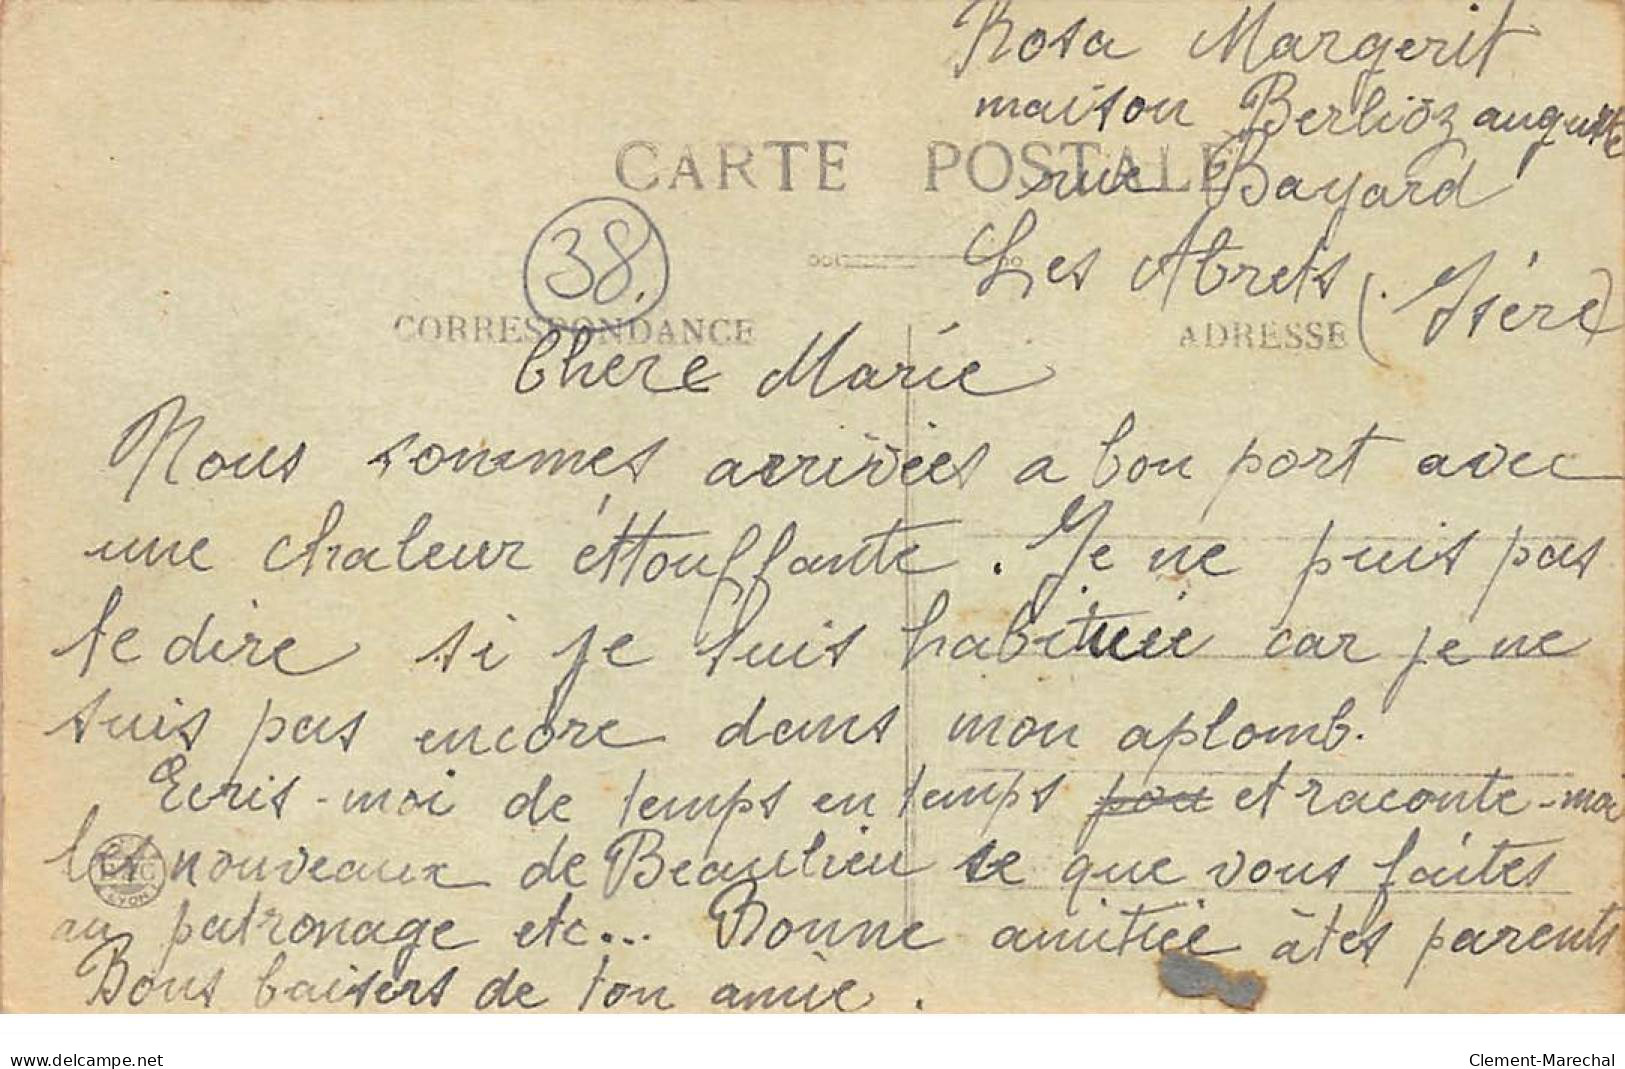 Rosa Margerit
maison Berlioz auguste
CARTE POSTALE
rue Bayard
Les Abrets (Isère)
38.
CORRESPONDANCE
ADRESSE
Chere Marie
Nous sommes arrivées a bon port avec
une chaleur éttouffante. Je ne puis pas
te dire si je suis habituée car je ne
suis pas encore dans mon aplomb.
Ecris-moi de temps en temps pou et raconte-moi
les nouveaux de Beaulieu se que vous faites
au patronage etc... Bonne amitiée à tes parents
Bons baisers de ton amie.
LYON
www.delcampe.net
Clement-Marechal